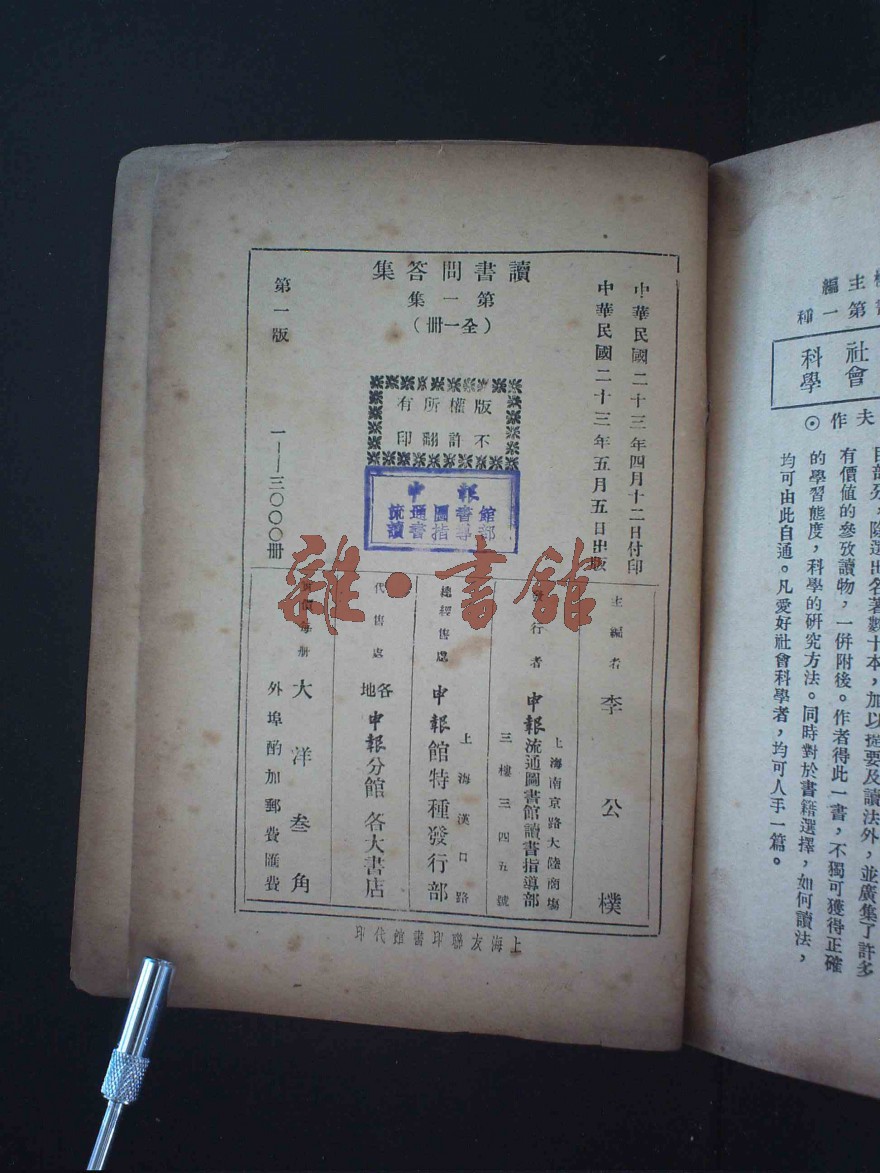 中華民國二十三年四月十二日付印
中華民國二十三年五月五日出版
讀書問答集
第一集
（全一册）
版權所有
不許翻印
第一版
一——三〇〇〇册
申報
流通圖書館
讀書指導部
主編者 李公樸
發行者
上海南京路大陸商塲
申報流通圖書館讀書指導部
三樓三四五號
總經售處
上海漢口路
申報館特種發行部
代售處
各地申報分館 各大書店
實價每册 大洋叁角
外埠酌加郵費匯費
上海友聯印書館代印
雜·書館
主編
第一種
社會科學
夫作⊙
目部外，除選出名著數十本，加以提要及讀法外，並廣集了許多
有價值的參攷讀物，一併附後。作者得此一書，不獨可獲得正確
的學習態度，科學的研究方法。同時對於書籍選擇，如何讀法，
均可由此自通。凡愛好社會科學者，均可人手一篇。